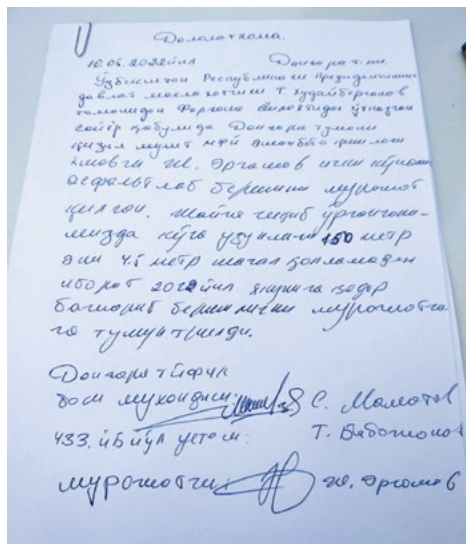 Далолатнома.
10.05.2022 йил Данғара т.ни.
Ўзбекистон Республикаси Президентининг
давлат маслаҳатчиси Т. Худайбергенов
томонидан Фарғона вилоятида ўтказган
сайёр қабулида Данғара тумани
қизил мушт мфй қишлоғи
Ж. Эргашов ички кўчани
асфальтлаб беришни мурожат
қилган. Жойга чиқиб ўрганга-
мизда кўча узунлиги 150 метр
эни 4.5 метр шағал қопламадан
иборат 2022 йил якунига қадар
бажариб берилишини мурожатчи-
га тушунтирилди.
Данғара тйфук
бош муҳандиси: С. Маматов
433. йБ йўл устаси: Т. Бабажонов
мурожатчи: Ж. Эргашев